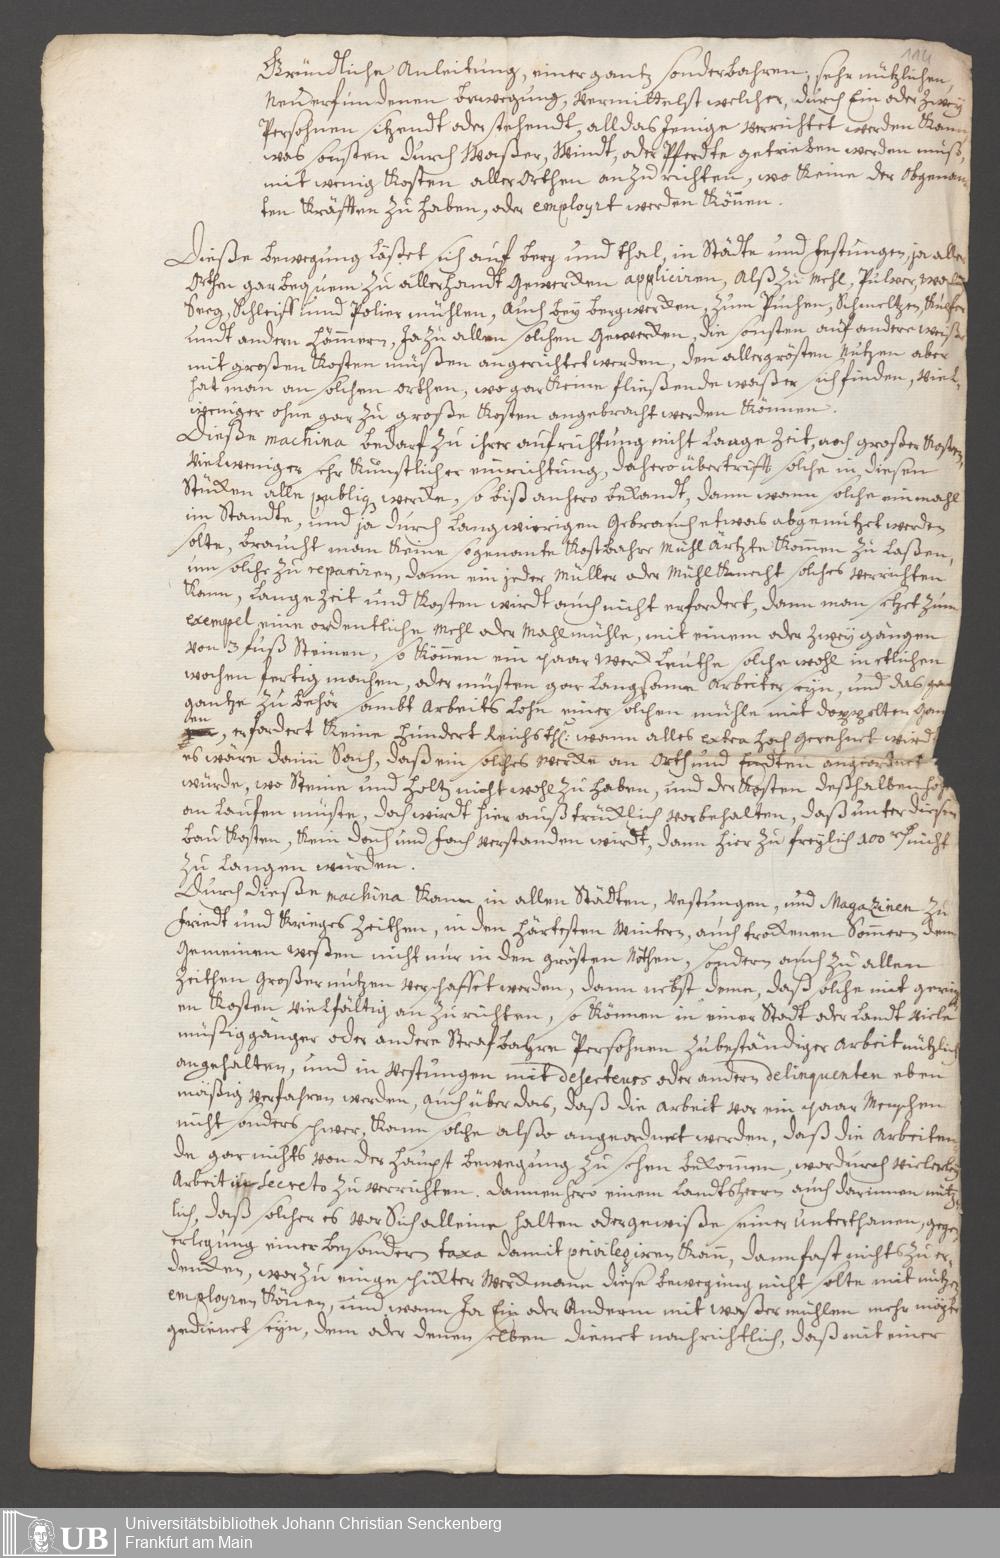 114
Gründliche Anleitung, einer gantz sonderbahren, sehr nützlichen,
Neu erfundenen bewegung, Vermittelst welcher, durch Ein oder Zwey
Persohnen sitzendt oder stehendt, all das Jenige verrichtet werden kann
was sonsten durch Waßer, Windt, oder Pferdte getrieben werden muß,
mit wenig Kosten aller Orthen anzurichten, wo keine der Obgenan-
ten Kräfften zu haben, oder employrt werden können.
Dieße bewegung läßet sich auf berg und thal, in Städte und Festungen, ja aller
Orthen gar bequem zu allerhandt Gewercken appliciren, Alß zu Mehl, Pulver,
Seeg, Schleiff und Polier mühlen, auch bey bergwercken, zum Puchen, Schmeltzen,
undt andern Hämmern, Ja zu allen solchen Gewercken, die sonsten auf andere weiße
mit großen Kosten müßen angerichtet werden, den allergrösten Nutzen aber
hat man an solchen orthen, wo gar keine fließende waßer sich finden, viel-
weniger ohne gar zu große Kosten angebracht werden können.
Dieße machina bedarf zu ihrer aufrichtung nicht lange Zeit, noch großer Kosten,
vielweniger sehr künstlicher einrichtung, dahero übertrifft solche in diesen
Stücken alle publiq wercke, so biß anhero bekandt, dann wann solche einmahl
im Standte, und ja durch langwierigen Gebrauch etwas abgenutzet werden
solte, braucht man keine sogenante Kostbahre Mühl Ärtzte kommen zu laßen,
um solche zu repariren, dann ein jeder Müller oder Mühlknecht solches verrichten
kann, lange Zeit und Kosten wirdt auch nicht erfordert, dann man setzet zum
exempel, eine ordentliche Mehl oder Mahlmühle, mit einem oder zwey gängen
von 3 fuß Steinen, so können ein paar Werck Leuthe solche wohl in etlichen
wochen fertig machen, oder müsten gar langsame Arbeiter seyn, und das
gantze zu behör sambt Arbeits Lohn einer solchen mühle mit doppelten Gän-
gen, erfordert keine hundert Reichsthl: wann alles extra hoch gerechnet wirdt
es wäre dann Sach, daß ein solches wercke an Orth und Endten angeordnet
würde, wo Steine und holtz nicht wohl zu haben, und der Kosten deßhalben höher
an laufen müste, doch wirdt hier außtrücklich vorbehalten, daß unter diesen
bau Kosten, kein dach und fach verstanden wirdt, dann hier zu freylich 100 rthl nicht
zu langen würden.
Durch dieße machina kann in allen Städten, Vestungen, und Magazinen zu
Friedt und Krieges Zeithen, in den härtesten Wintern, auch trockenen Sommern dem
Gemeinen weßen nicht nur in den grösten Nöthen, sondern auch zu allen
Zeithen Großer nutzen verschaffet werden, dann nebst deme, daß solche mit gering-
en Kosten vielfältig an zu richten, so können in einer Stadt oder Landt viele
müßiggänger oder andere Strafbahre Persohnen zu beständiger Arbeit nützlich
angehalten, und in Vestungen mit deserteurs oder andern delinquenten eben
mäßig verfahren werden, auch über das, daß die Arbeit vor ein paar Menschen
nicht sonders schwer, kann solche alßo angeordnet werden, daß die Arbeiten-
de gar nichts von der haupt bewegung zu sehen bekommen, wordurch vielerley
Arbeit in secreto zu verrichten. dannenhero einem Landtsherrn auch darinnen nütz-
lich, daß solcher es vor sich alleine halten oder gewiße seiner Unterthanen, gegen
erlegung einer besondern taxa damit privilegiren kann, dann fast nichts zu er-
dencken, worzu ein geschickter Werckmann diese bewegung nicht solte mit nutzen
employren können, und wann Ja Ein oder Anderm mit waßer mühlen mehr möchte
gedienet seyn, dem oder denen selben dienet nachrichtlich, daß mit einer
UB
Universitätsbibliothek Johann Christian Senckenberg
Frankfurt am Main